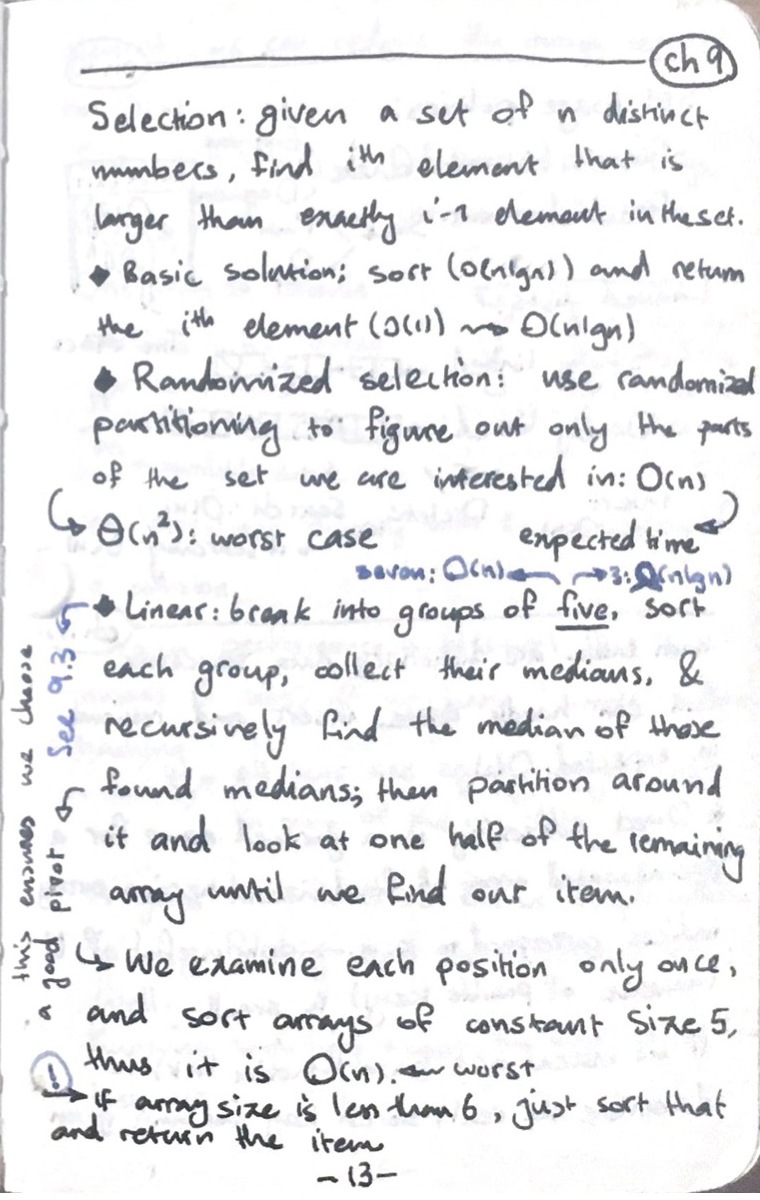 ch 9
Selection: given a set of n distinct
numbers, find ith element that is
larger than exactly i-1 element in the set.
◆ Basic solution: sort (O(nlgn)) and return
the ith element (O(1)) ⇝ O(nlgn)
◆ Randomized selection: use randomized
partitioning to figure out only the parts
of the set we are interested in: O(n)
↳ Θ(n²): worst case expected time ↵
seven: O(n) ← → 3: Ω(nlgn)
◆ Linear: break into groups of five, sort
each group, collect their medians, &
recursively find the median of those
found medians; then partition around
it and look at one half of the remaining
array until we find our item.
See 9.3
this ensures we choose
a good pivot
↳ We examine each position only once,
and sort arrays of constant size 5,
thus it is O(n). ← worst
(!) → if array size is less than 6, just sort that
and return the item
-13-